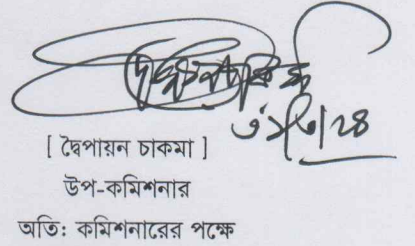 [ দ্বৈপায়ন চাকমা ]
উপ-কমিশনার
অতি: কমিশনারের পক্ষে